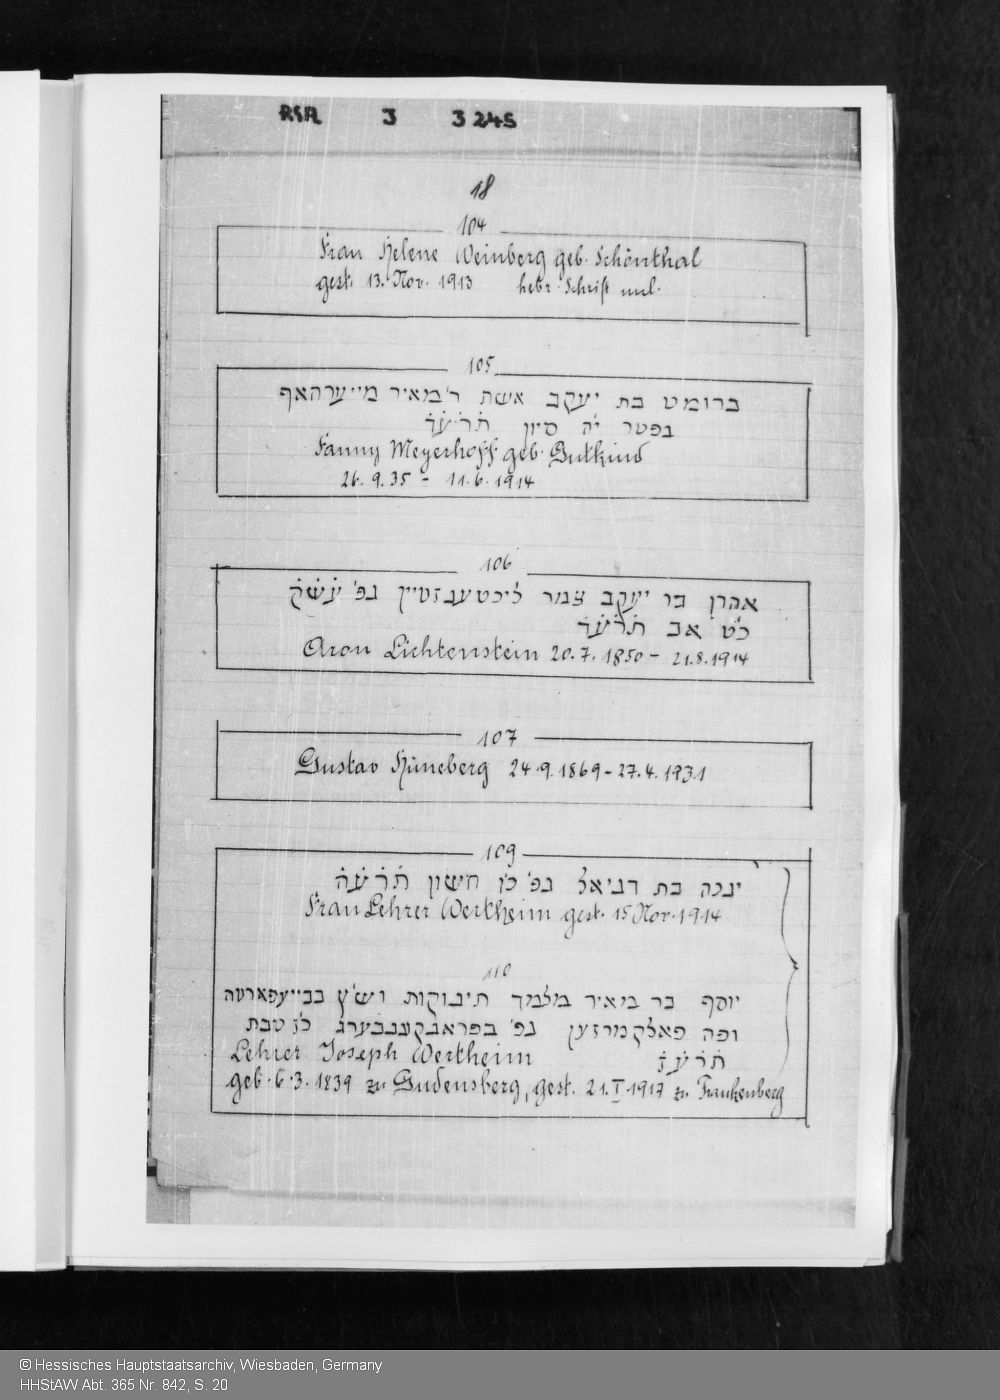 RSA J 3245
18
104
Frau Helene Weinberg geb. Schönthal
gest. 13. Nov. 1913 hebr. Schrift unl.
105
ברומט בת יעקב אשת ר' מאיר מייערהאף
נפטר י"ה סיון תרעד
Fanny Meyerhoff geb. Gutkind
26.9.35 - 11.6.1914
106
אהרן בר יעקב צמר ליכטענזטיין נפ' עשק
כ"ט אב תרעד
Aron Lichtenstein 20.7.1850 - 21.8.1914
107
Gustav Hüneberg 24.9.1869 - 27.4.1931
109
ינכה בת דניאל נפ' כ"ו חשון תרעה
Frau Lehrer Wertheim gest. 15 Nov. 1914
110
יוסף בר מאיר מלמד תינוקות וש"ץ
ופה פאלקמרזען נפ' בפראנקענבערג כ"ז טבת
Lehrer Joseph Wertheim תרעז
geb. 6.3.1839 zu Gudensberg, gest. 21.I.1917 zu Frankenberg
© Hessisches Hauptstaatsarchiv, Wiesbaden, Germany
HHStAW Abt. 365 Nr. 842, S. 20